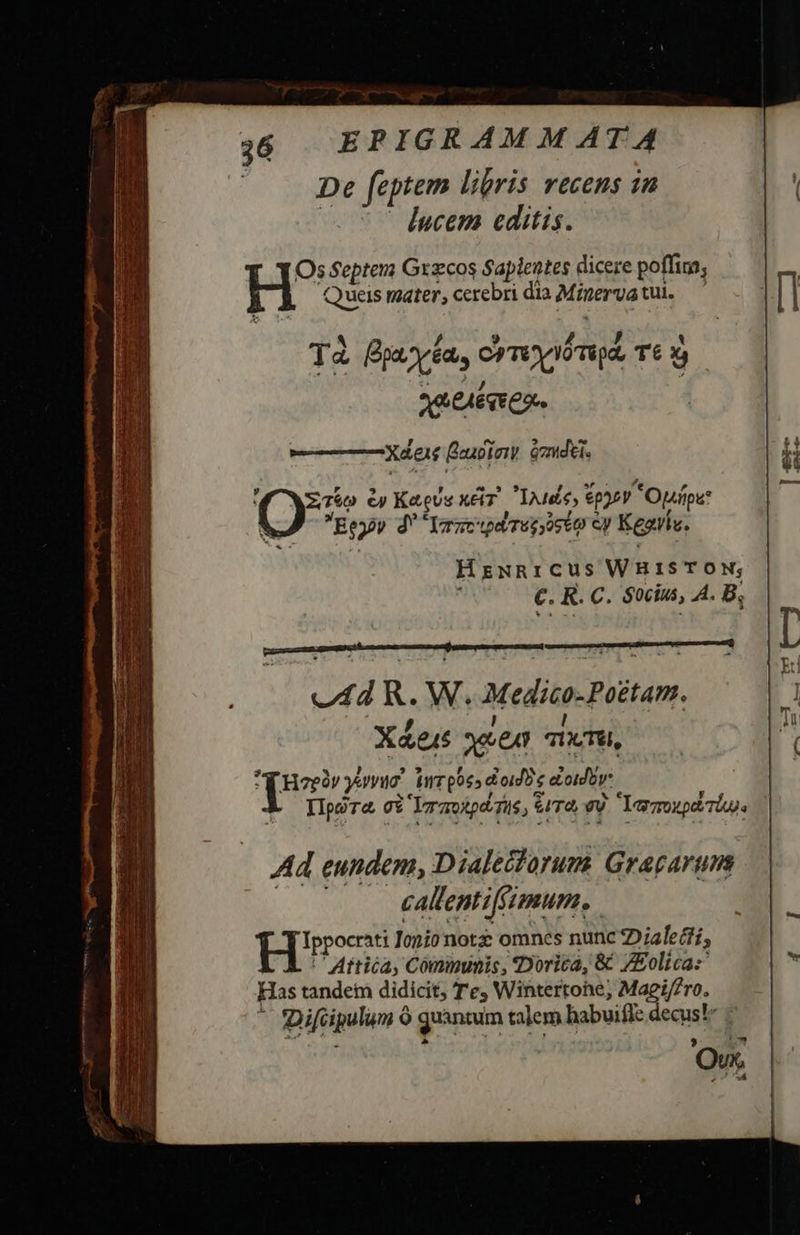 36 EPIGRAMMATA
De ſeptem libris recens in
lucem editis.
HOs Septem Græcos Sapientes dicere poſſim,
Queis mater, cerebri dia Minerva tui.
Τὰ βραχέα,
χαριέστερα.
Χάρις βαιοῖσιν ὀπηδεῖ.
ΟΣτέῳ ἐν Καρύς κεῖτ' Ἰλιὰς, ἔργον Ὁμήρου·
Ἔργον δ' Ἱπποκράτους, ὀστέῳ ἐν Κρανίου.
HENRICUS WHISTON,
C. R. C. Socius, A. B.
Ad R. W. Medico-Poëtam.
Χάρις χάριν τίκτει,
ἸΗτρὸν γέννησ' ἰητρὸς, ἀοιδὸς ἀοιδόν·
Πρῶτα σὲ Ἱπποκράτης, εἶτα σὺ Ἱπποκράτην.
Ad eundem, Dialectorum Græcarum
callentiſsimum.
HIppocrati Ionio notæ omnes nunc Dialecti,
Attica, Communis, Dorica, & Æolica:
Has tandem didicit, Te, Wintertone, Magiſtro.
Diſcipulum ô quantum talem habuiſſe decus!
Οὐκ